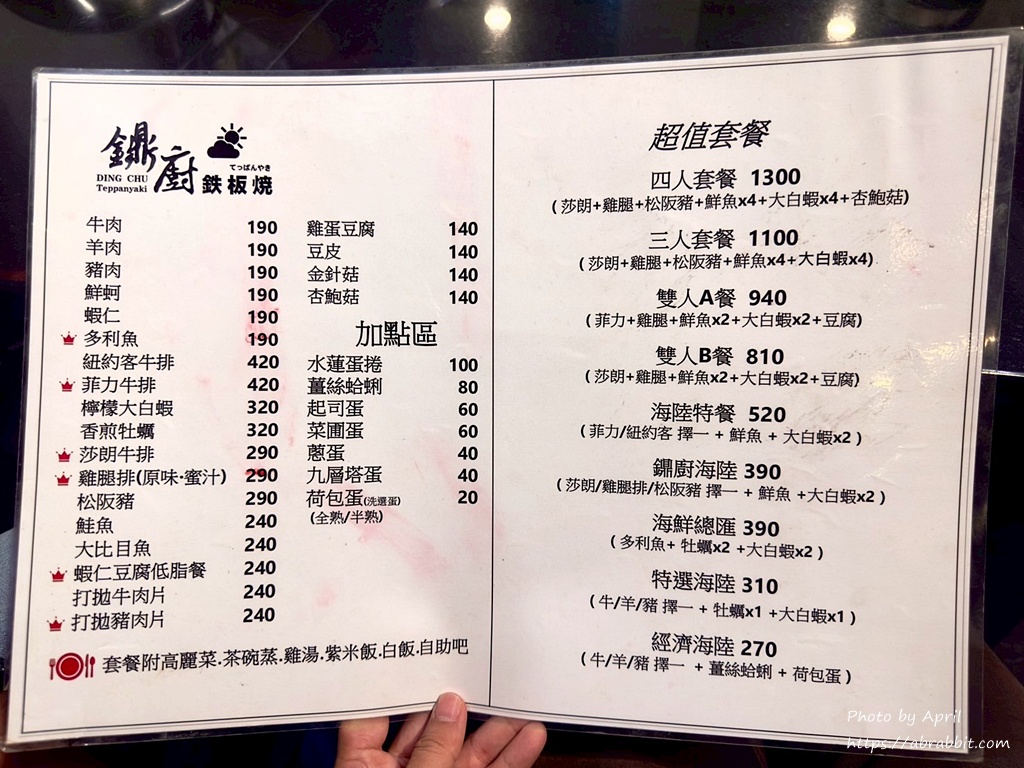 鐤廚
DING CHU
Teppanyaki
てっぱんやき
鉄板燒
牛肉 190
羊肉 190
豬肉 190
鮮蚵 190
蝦仁 190
多利魚 190
紐約客牛排 420
菲力牛排 420
檸檬大白蝦 320
香煎牡蠣 320
莎朗牛排 290
雞腿排(原味·蜜汁) 290
松阪豬 290
鮭魚 240
大比目魚 240
蝦仁豆腐低脂餐 240
打拋牛肉片 240
打拋豬肉片 240
雞蛋豆腐 140
豆皮 140
金針菇 140
杏鮑菇 140
加點區
水蓮蛋捲 100
薑絲蛤蜊 80
起司蛋 60
菜圃蛋 60
蔥蛋 40
九層塔蛋 40
荷包蛋(洗選蛋) 20
(全熟/半熟)
套餐附高麗菜.茶碗蒸.雞湯.紫米飯.白飯.自助吧
超值套餐
四人套餐 1300
(莎朗+雞腿+松阪豬+鮮魚x4+大白蝦x4+杏鮑菇)
三人套餐 1100
(莎朗+雞腿+松阪豬+鮮魚x4+大白蝦x4)
雙人A餐 940
(菲力+雞腿+鮮魚x2+大白蝦x2+豆腐)
雙人B餐 810
(莎朗+雞腿+鮮魚x2+大白蝦x2+豆腐)
海陸特餐 520
(菲力/紐約客 擇一 + 鮮魚 + 大白蝦x2 )
鐤廚海陸 390
(莎朗/雞腿排/松阪豬 擇一 + 鮮魚 +大白蝦x2 )
海鮮總匯 390
( 多利魚+ 牡蠣x2 +大白蝦x2 )
特選海陸 310
( 牛/羊/豬 擇一 + 牡蠣x1 +大白蝦x1 )
經濟海陸 270
( 牛/羊/豬 擇一 + 薑絲蛤蜊 + 荷包蛋 )
Photo by April
https://abrabbit.com